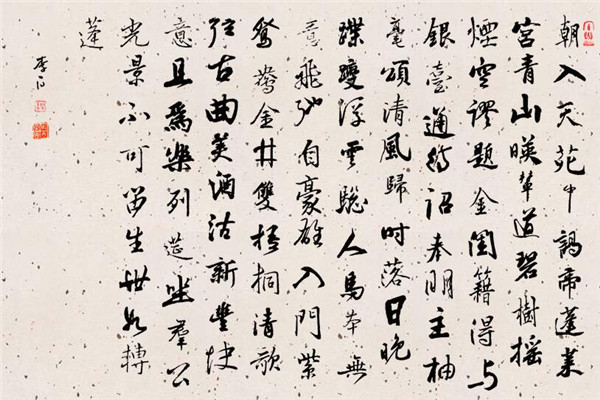 朝入天苑中謁帝蓬萊
宮青山暎輦道碧樹搖
煙空謬題金閨籍得与
銀臺通待詔奉明主抽
毫頌清風歸時落日晚
蹀躞浮雲驄人馬本無
意飛馳自豪雄入門紫
鴛鴦金井雙梧桐清歌
弦古曲美酒沽新豐快
意且為樂列筵坐群公
光景不可留生世如轉
蓬
李白